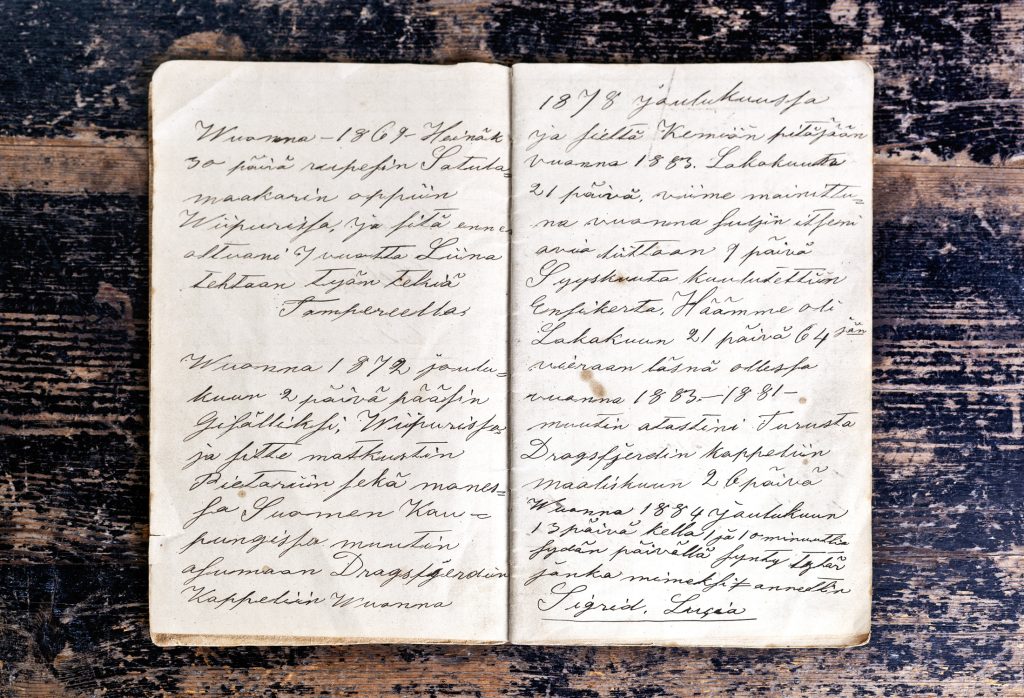 Wuonna – 1869 – Heinäk
30 päivä rupesin Satula-
maakarin oppiin
Wiipurissa, ja sitä ennen
oltuani 7 vuotta Liina
tehtaan työn tehiä
Tampereella.
Wuonna 1872 joulu-
kuun 2 päivä pääsin
Gisälliksi, Wiipurissa
ja sitte matkustin
Pietariin sekä mones-
sa Suomen Kau-
pungissa muutin
asumaan Dragsfjerdin
Kappeliin Wuonna
1878 joulukuussa
ja sieltä Kemiön pitäjään
vuonna 1883. Lokakuuta
21 päivä, viime mainittu-
na vuonna itseni
avio liittoon 9 päivä
Syyskuuta kuulutettiin
Ensikerta, Häämme oli
Lokakuun 21 päivä 64 jän
vieraan läsnä ollessa
vuonna 1883 – 1881 –
muutin Turusta
Dragsfjerdin kappeliin
maaliskuun 26 päivä
Wuonna 1884 joulukuun
13 päivä kello 1 ja 10 minuuttia
sydän päivällä synty tytär
jonka nimeksi annettin
Sigrid. Lucia